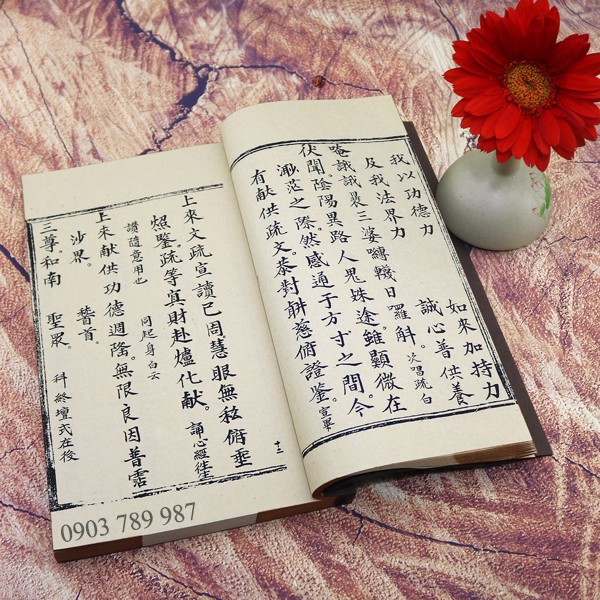 我以功德力 如來加持力
及我法界力 誠心普供養
唵誐誐曩三婆嚩韈日囉斛。次唱疏白
伏聞。陰陽異路人鬼殊途。雖顯微在
渺茫之際。然感通于方寸之間。今
有献供疏文。恭對慈俯證鑒。宣畢
十三
上來文疏宣讀已周慧眼無私俯垂
照鑒。疏等真財赴爐化献。誦心經往生
讚隨意用也 同起身白云
上來献供功德週隆。無限良因普霑
沙界。 首。
三尊。和南 聖眾。 科終壇式在後
0903 789 987